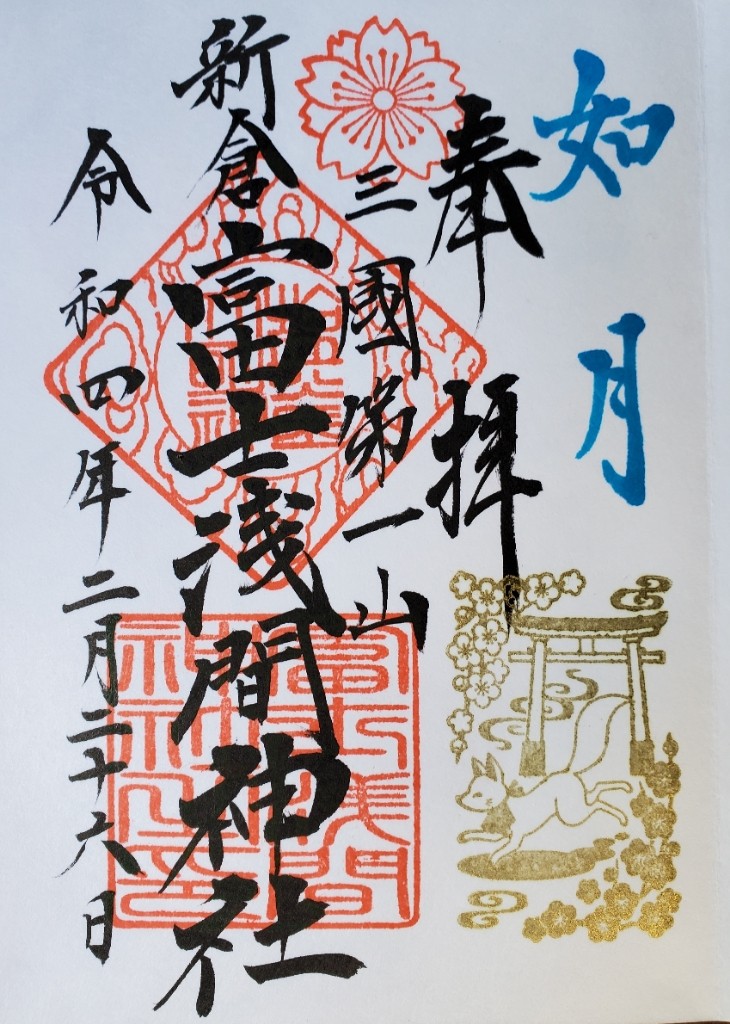 如月
奉拝
三國第一山
新倉富士浅間神社
令和四年二月二十六日